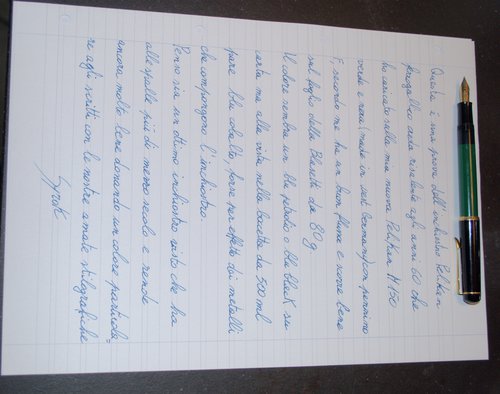 Questa è una prova dell'inchiostro Pelikan
ferrogallico credo risalente agli anni 60 che
ho caricato sulla mia nuova Pelikan M150
verde e nera (made in west Germani) con pennino
F, secondo me ha un buon flusso e scorre bene
sul foglio della Blasetti da 80g.
Il colore sembra un blu petrolio o blu black su
carta ma alla vista nella boccetta da 500 ml
pare blu cobalto, forse per effetto dei metalli
che compongono l'inchiostro.
Penso sia un ottimo inchiostro visto che ha
alle spalle più di mezzo secolo e rende
ancora molto bene donando un colore particola=
re agli scritti con le nostre amate stilografiche
Syrok